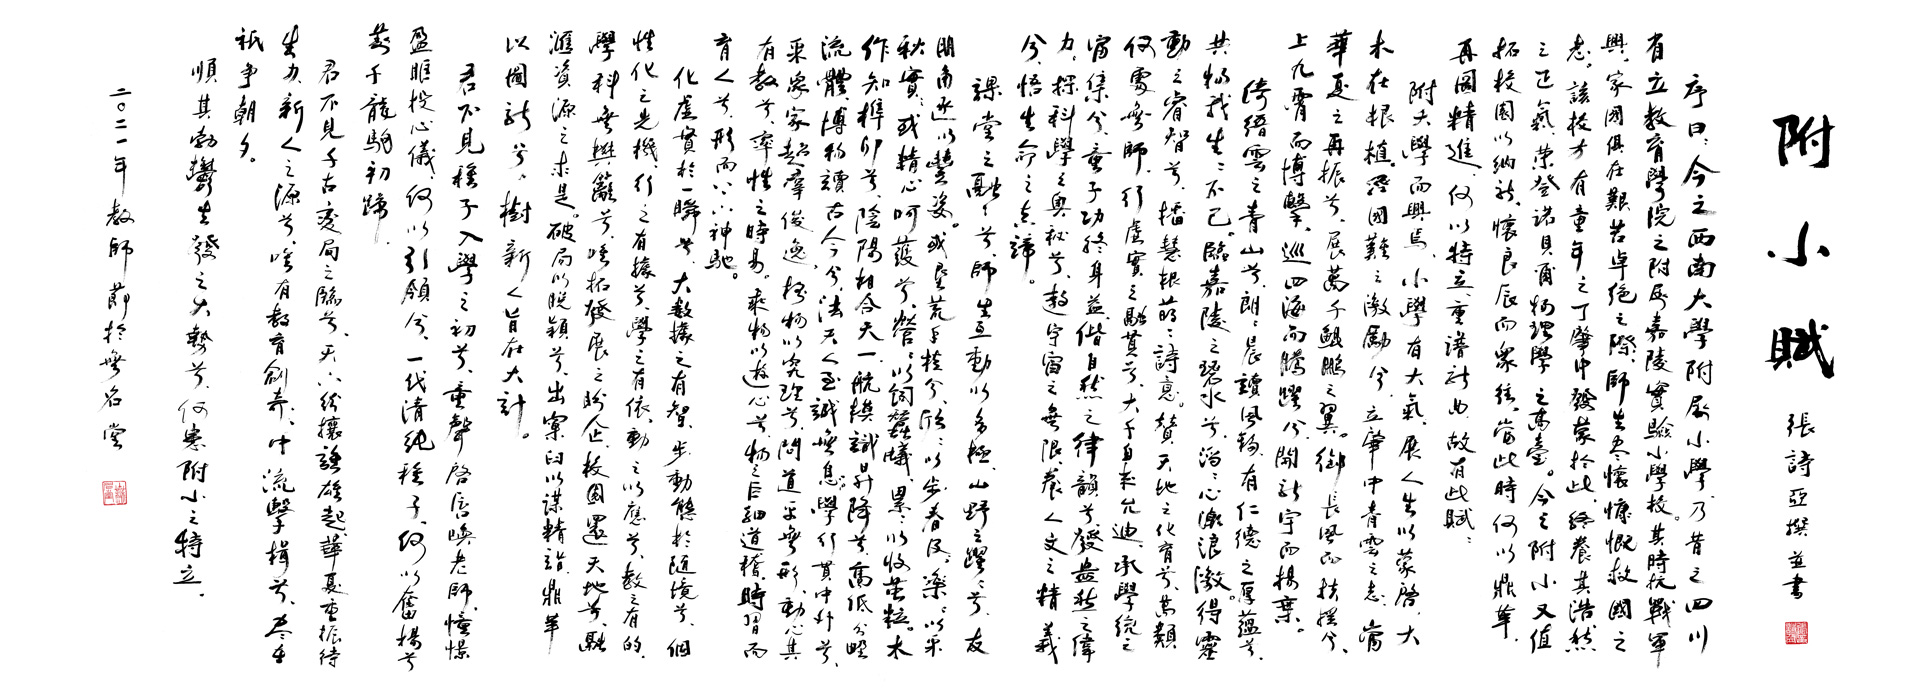 附小賦
張詩亞撰並書
序曰:今之西南大學附屬小學,乃昔之四川
省立教育學院之附屬嘉陵實驗小學校。其時抗戰軍
興,家國俱在艱苦卓絕之際,師生盡懷慷慨救國之
志。該校才有童年之丁肇中發蒙於此,終養其浩然
之正氣,榮登諾貝爾物理學之高臺。今之附小又值
拓校園以納新,懷良辰而眾往,當此時何以鼎革,
再圖精進,何以特立,重譜新曲,故有此賦:
附大學而興焉,小學有大氣,展人生以蒙啓,大
木在根植。罹國難之激勵兮,立肇中青雲之志,當
華夏之再振兮,展萬千鯤鵬之翼。御長風而扶搖兮,
上九霄而博擊,巡四海而騰躍兮,開新宇而揚棄。
倚縉雲之青山兮,朗朗晨讀風翰,有仁德之厚蘊兮,
共物我生生不已。臨嘉陵之碧水兮,滔滔心潮浪激。得靈
動之睿智兮,播慧根萌萌詩意。贊天地之化育兮,萬類
何處無師,行虛實之融貫兮,大千自來允迪,承學統之
宙集兮,童子功終身益,偕自然之律韻兮,發盎然之偉
力。探科學之奧秘兮,趣宇宙之無限,養人文之精義
兮,悟生命之真諦。
課堂之融融兮,師生互動以多極,山野之躍躍兮,友
朋角逐以豐姿。或墾荒手植兮,欣欣以步春及,樂樂以采
秋實;或精心呵護兮,營營以飼蠶蟻,累累以收黍粒。木
作知榫卯兮,陰陽相合天一,航模識升降兮,高低分野
流體,博物讀古今兮,法天人至誠無息,學行貫中外兮,
采眾家超羣俊逸,格物以究理兮,問道平無形,動心其
有教兮,率性之時易。乘物以遊心兮,物之巨細道稽,時習而
育人兮,形而下下神馳。
化虛實於一瞬兮,大數據之有智,步動態於隨境兮,個
性化之先機,行之有據兮,學之有依,動之以應兮,教之有的,
學科無樊籬兮,唯拓發展之盼企,校園還天地兮,融
滙資源之求是。破局以脫穎兮,出窠臼以謀精詣,鼎革
以圖新兮,樹新人旨在大計。
君不見稚子入學之初兮,童聲啓唇喚老師,憧憬
盈眶投心儀,何以引領兮,一代清純稚子,何以奮揚兮
萬千龍駒初蹄。
君不見千古變局之臨兮,天下紛攘誰雄起,華夏重振待
生力,新人之源兮,唯有教育創奇,中流擊楫兮,盡全
祇爭朝夕。
順其勃鬱生發之大勢兮,何患附小之特立。
二〇二一年教師節於無名堂